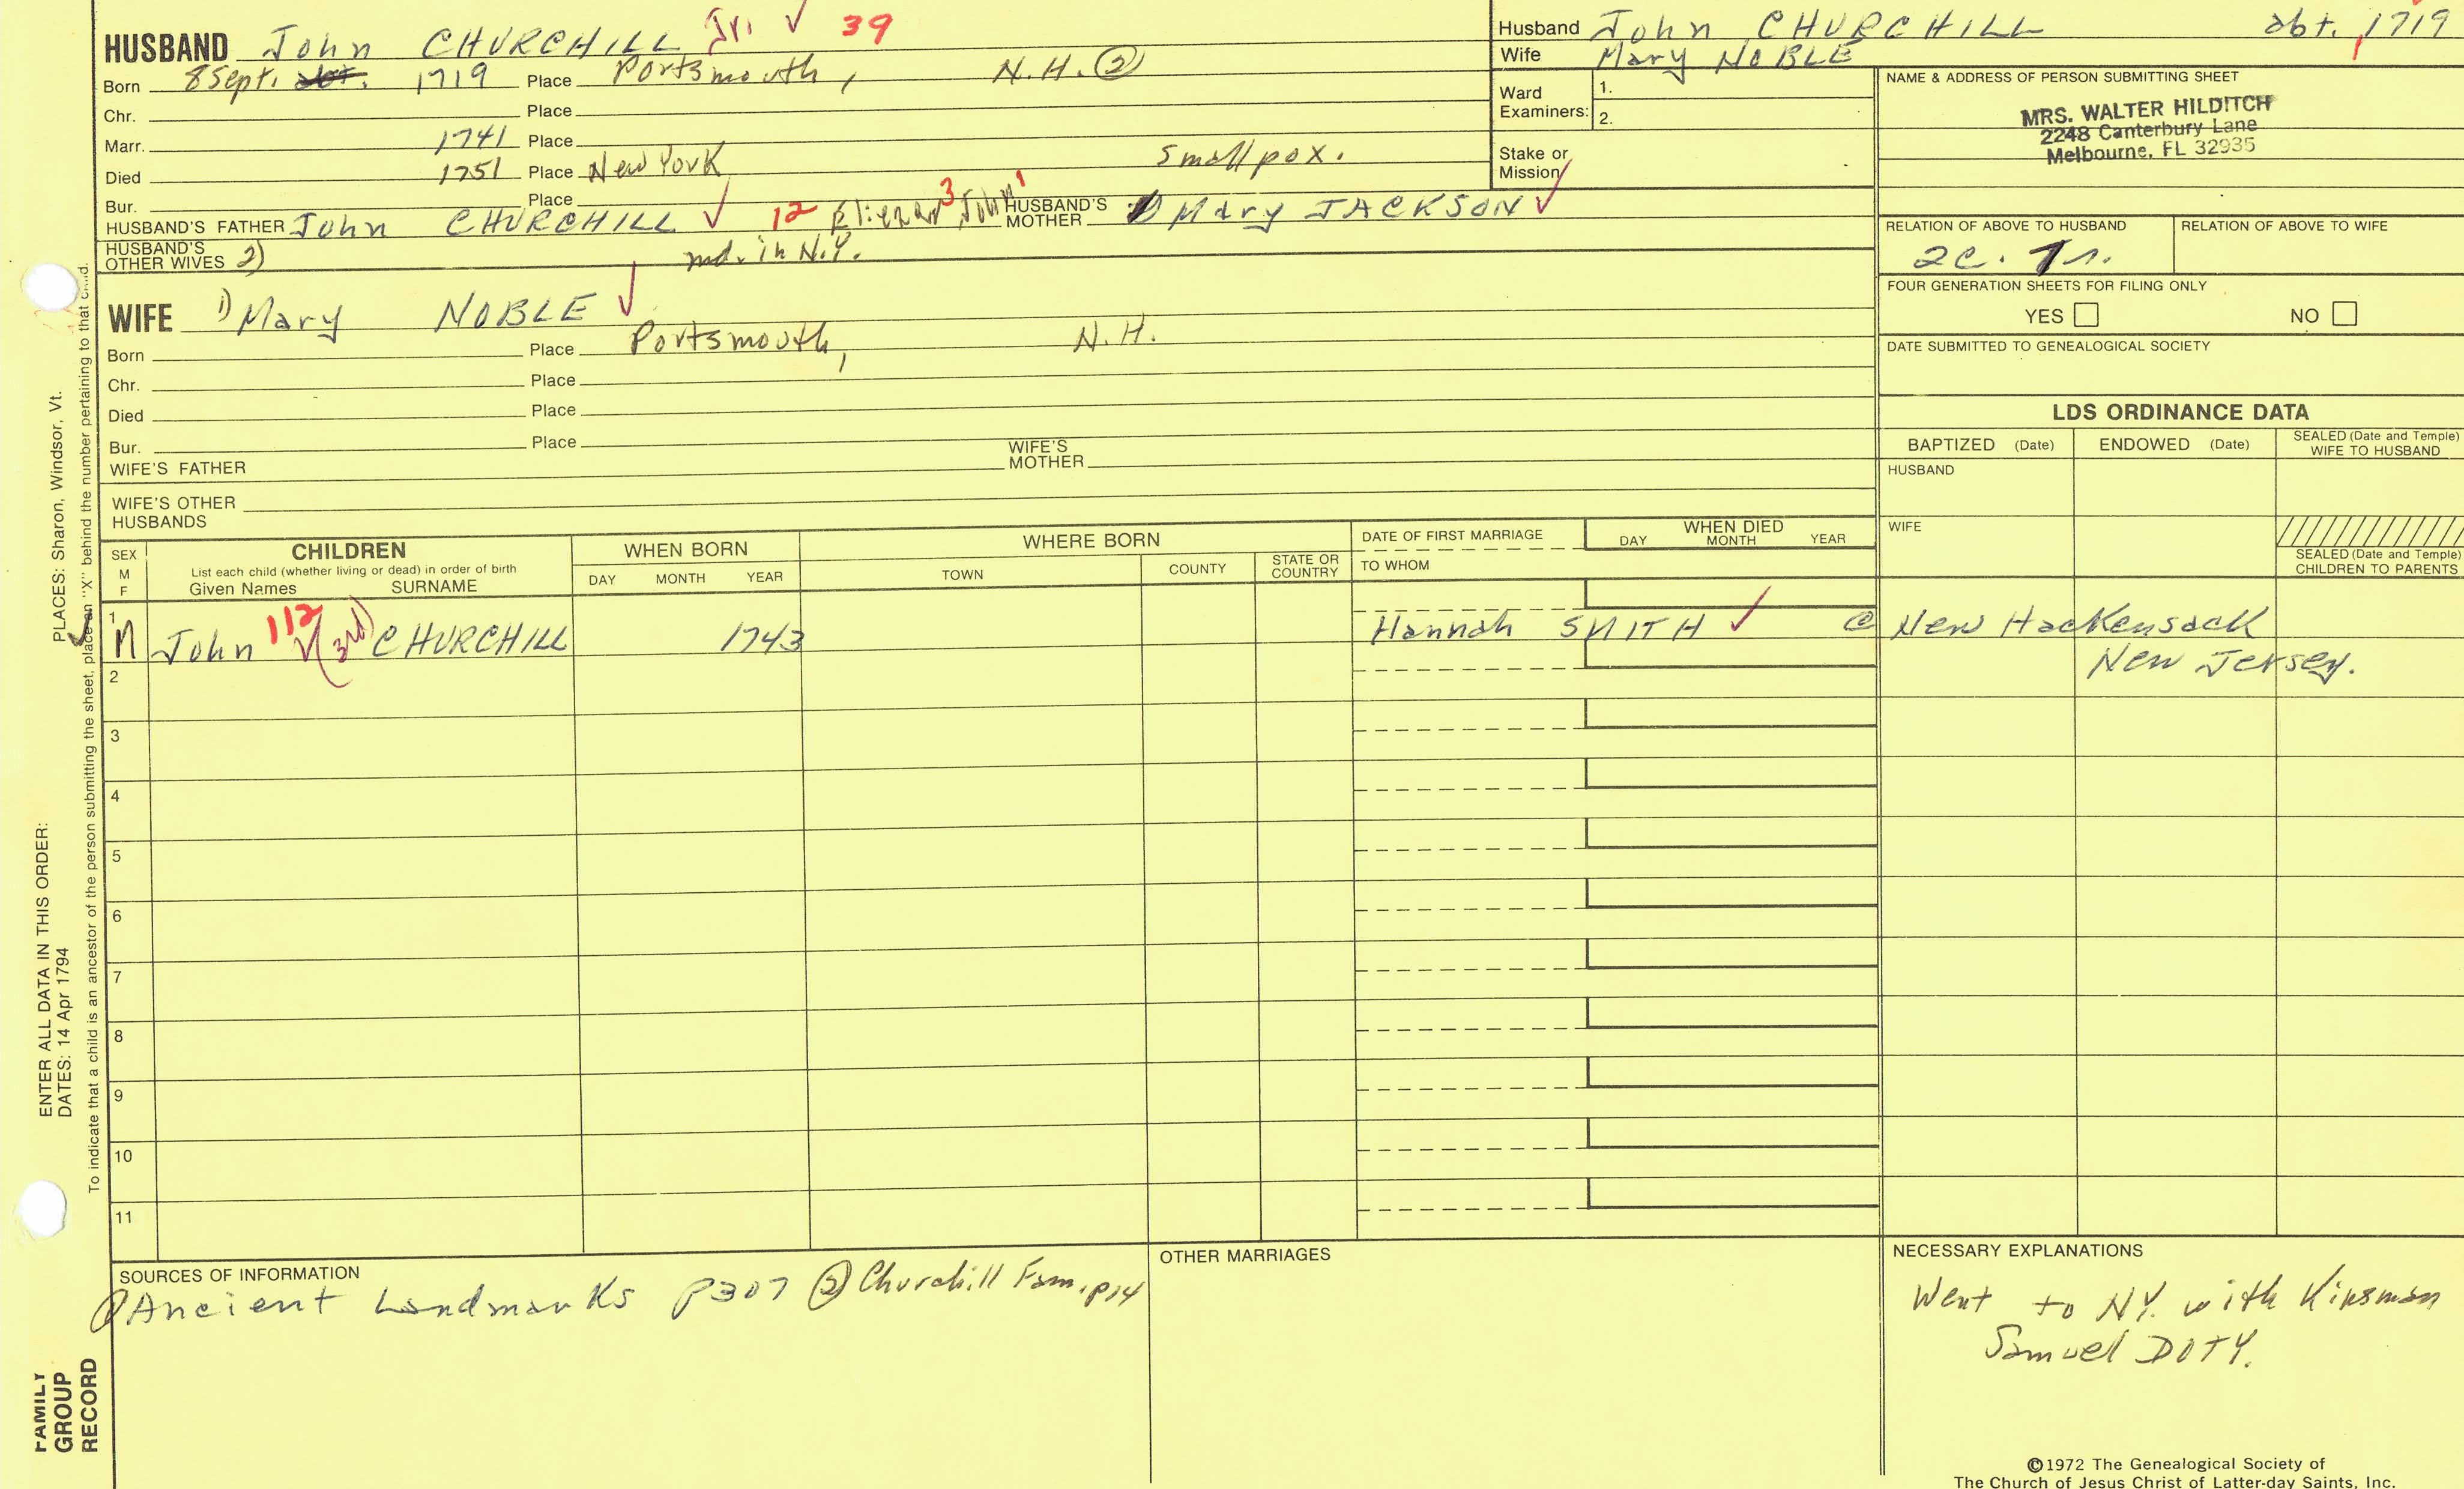 HUSBAND John CHURCHILL Jr. ✓ 39
Born 8 Sept. abt. 1719 Place Portsmouth, N.H. ②
Chr. Place
Marr. 1741 Place
Died 1751 Place New York Small pox.
Bur. Place
HUSBAND'S FATHER John CHURCHILL ✓ 12 Eliezar³ John¹ HUSBAND'S MOTHER 1) Mary JACKSON ✓
HUSBAND'S OTHER WIVES 2) md. in N.Y.
WIFE 1) Mary NOBLE ✓
Born Place Portsmouth, N.H.
Chr. Place
Died Place
Bur. Place
WIFE'S FATHER WIFE'S MOTHER
WIFE'S OTHER HUSBANDS
Husband John CHURCHILL abt. 1719
Wife Mary NOBLE
Ward Examiners: 1.
2.
Stake or Mission
NAME & ADDRESS OF PERSON SUBMITTING SHEET
MRS. WALTER HILDITCH
2248 Canterbury Lane
Melbourne, FL 32935
RELATION OF ABOVE TO HUSBAND RELATION OF ABOVE TO WIFE
2c. 7r.
FOUR GENERATION SHEETS FOR FILING ONLY
YES NO
DATE SUBMITTED TO GENEALOGICAL SOCIETY
LDS ORDINANCE DATA
BAPTIZED (Date) ENDOWED (Date) SEALED (Date and Temple) WIFE TO HUSBAND
HUSBAND
WIFE
SEALED (Date and Temple) CHILDREN TO PARENTS
SEX M F
CHILDREN
List each child (whether living or dead) in order of birth
Given Names SURNAME
WHEN BORN
DAY MONTH YEAR
WHERE BORN
TOWN COUNTY STATE OR COUNTRY
DATE OF FIRST MARRIAGE
TO WHOM
WHEN DIED
DAY MONTH YEAR
1 M John 112 ✓ (3rd) CHURCHILL 1743 Hannah SMITH ✓ @ New Hackensack
New Jersey.
2
3
4
5
6
7
8
9
10
11
SOURCES OF INFORMATION
① Ancient Landmarks P307 ② Churchill Fam. p14
OTHER MARRIAGES
NECESSARY EXPLANATIONS
Went to NY. with Kinsman
Samuel DOTY.
©1972 The Genealogical Society of
The Church of Jesus Christ of Latter-day Saints, Inc.
ENTER ALL DATA IN THIS ORDER:
DATES: 14 Apr 1794
PLACES: Sharon, Windsor, Vt.
To indicate that a child is an ancestor of the person submitting the sheet, place an "X" behind the number pertaining to that child.
FAMILY
GROUP
RECORD